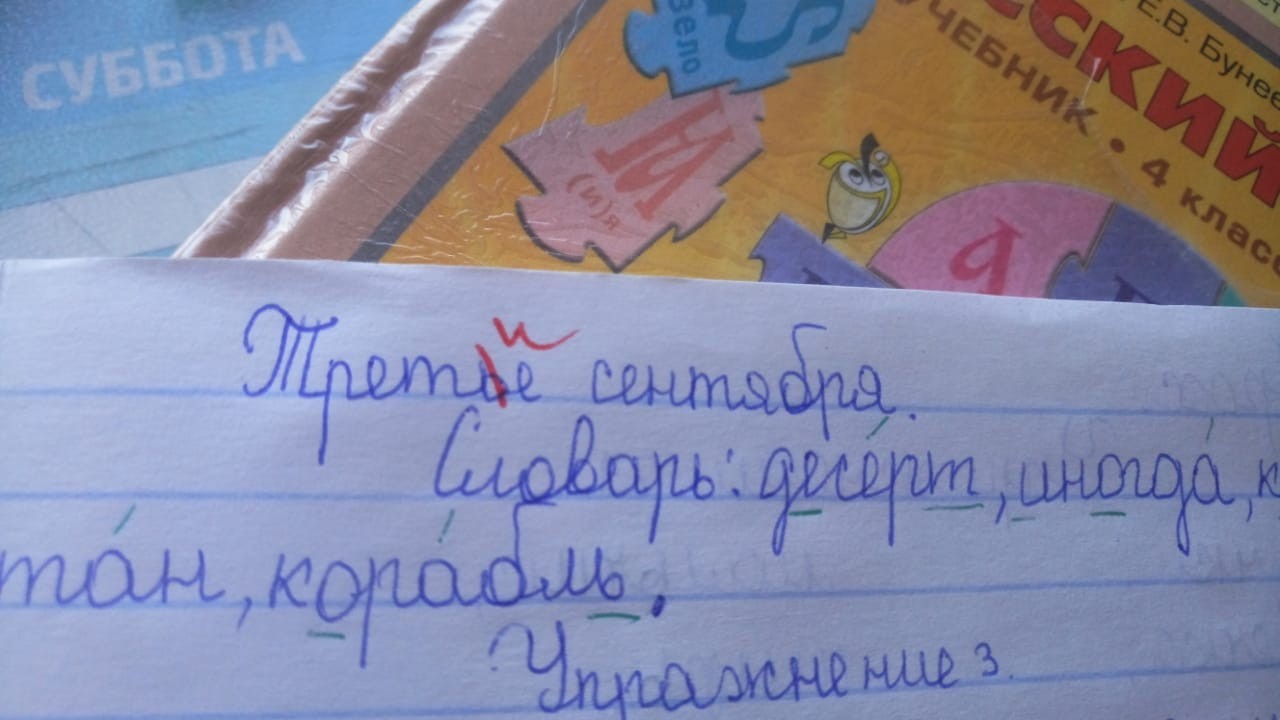 СУББОТА
вело
Е.В. Бунее
ССКИЙ
УЧЕБНИК • 4 класс
(и)я
Я
Третье сентября.
и
Словарь: десерт, иногда, к
тан, корабль.
Упражнение 3.